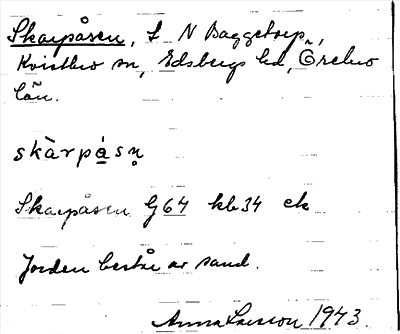 Skarpåsen, t N Baggetorp,
Kvistbro sn, Edsbergs hd, Örebro
län.
skàrpå̀sn̥
Skarpåsen G 64 kb 34 ek
Jorden består av sand.
Anna Larsson 1943.